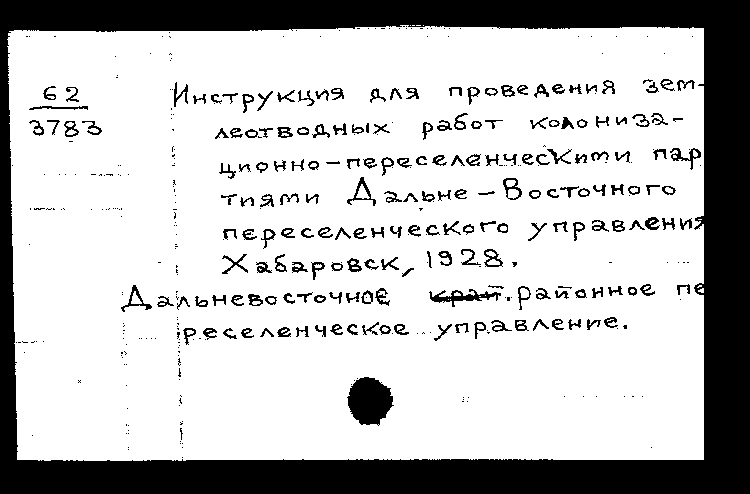 62
3783
Инструкция для проведения зем-
леотводных работ колониза-
ционно-переселенческими пар
тиями Дальне-Восточного
переселенческого управления
Хабаровск, 1928.
Дальневосточное край. районное пе
реселенческое управление.